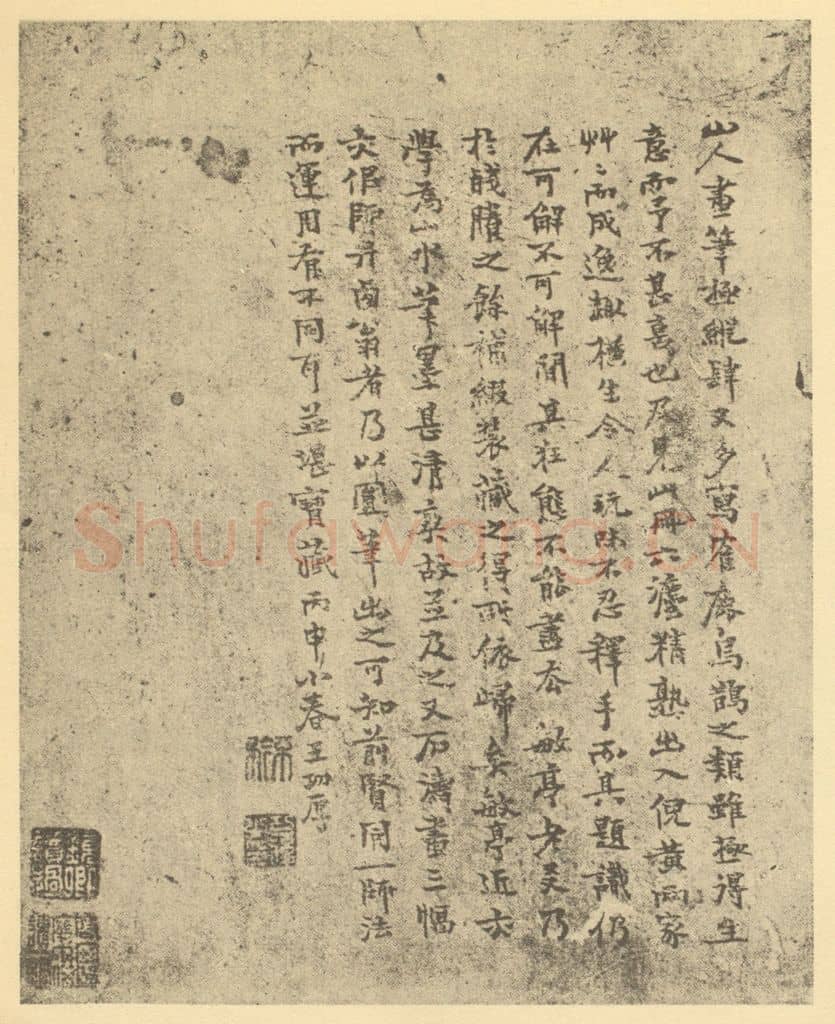 山人畫筆極縱肆又多寫雀鹿烏鵲之類雖極得生
意而予不甚喜也及見此冊六澹精熟出入倪黃兩家
艸〻而成逸趣橫生令人玩味不忍釋手而其題識仍
在可解不可解間其狂態不能盡厺敏亭老友乃
於殘賸之餘補綴裝藏之得所依歸矣敏亭近六
學為山水筆墨甚清爽故並及之又石濤畫三幅
六佀師方翁者乃以圓筆出之可知前賢同一師法
而運用有不同耳並堪寶藏丙申小春王
Shufawang.CN